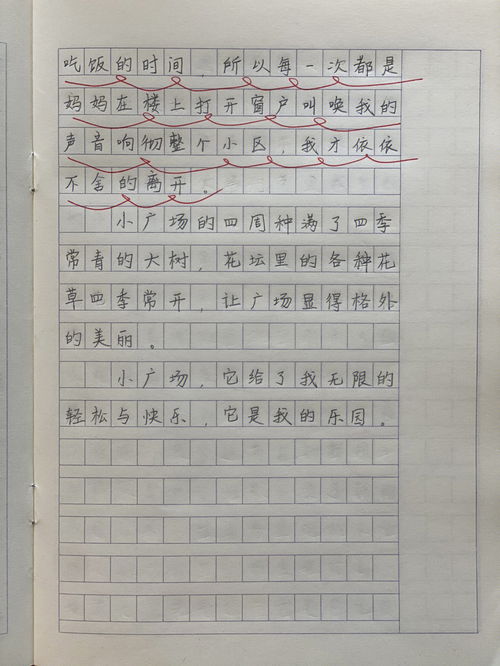 吃饭的时间，所以每一次都是
妈妈在楼上打开窗户叫唤我的
声音响彻整个小区，我才依依
不舍的离开。
小广场的四周种满了四季
常青的大树，花坛里的各种花
草四季常开，让广场显得格外
的美丽。
小广场，它给了我无限的
轻松与快乐，它是我的乐园。